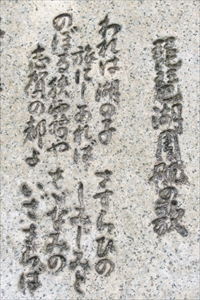 琵琶湖周航の歌
われは湖の子 さすらひの
旅にしあれば しみじみと
のぼる狭霧や さざなみの
志賀の都よ いざさらば